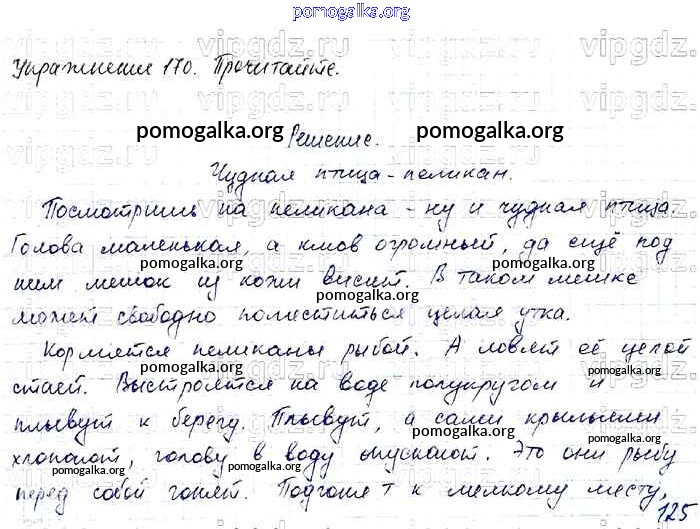 pomogalka.org
vipgdz.ru vipgdz.ru vipgdz.ru
Упражнение 170. Прочитайте.
pomogalka.org Решение. pomogalka.org
Чудная птица-пеликан.
Посмотришь на пеликана - ну и чудная птица.
Голова маленькая, а клюв огромный, да ещё под
pomogalka.org pomogalka.org
ним мешок из кожи висит. В таком мешке
pomogalka.org
может свободно поместиться целая утка.
Кормятся пеликаны рыбой. А ловят её целой
pomogalka.org pomogalka.org
стаей. Выстроятся на воде полукругом и
плывут к берегу. Плывут, а сами крыльями
pomogalka.org pomogalka.org
хлопают, голову в воду опускают. Это они рыбу
pomogalka.org
перед собой гонят. Подгонят к мелкому месту,
pomogalka.org
125